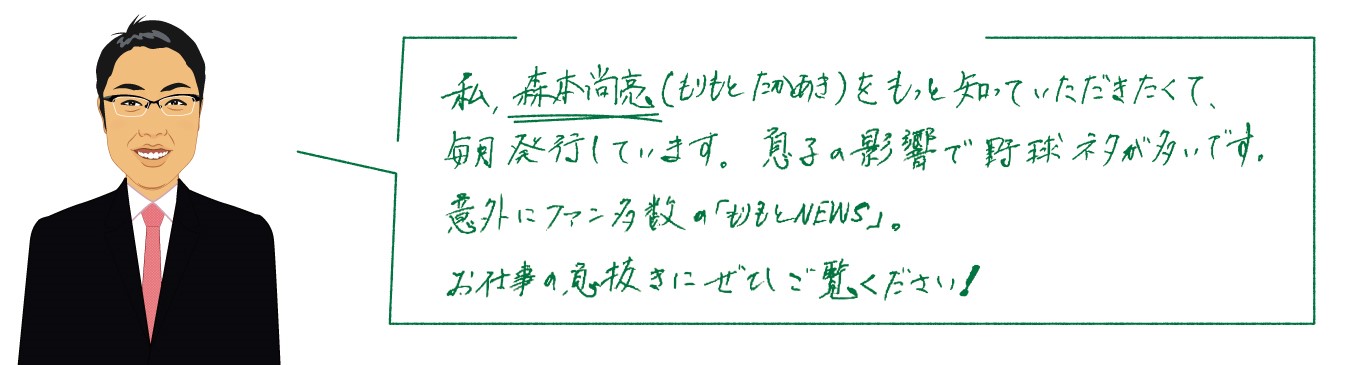 私、森本尚亮(もりもと たかあき)をもっと知っていただきたくて、
毎月発行しています。息子の影響で野球ネタが多いです。
意外にファン多数の「もりもとNEWS」。
お仕事の息抜きにぜひご覧ください!